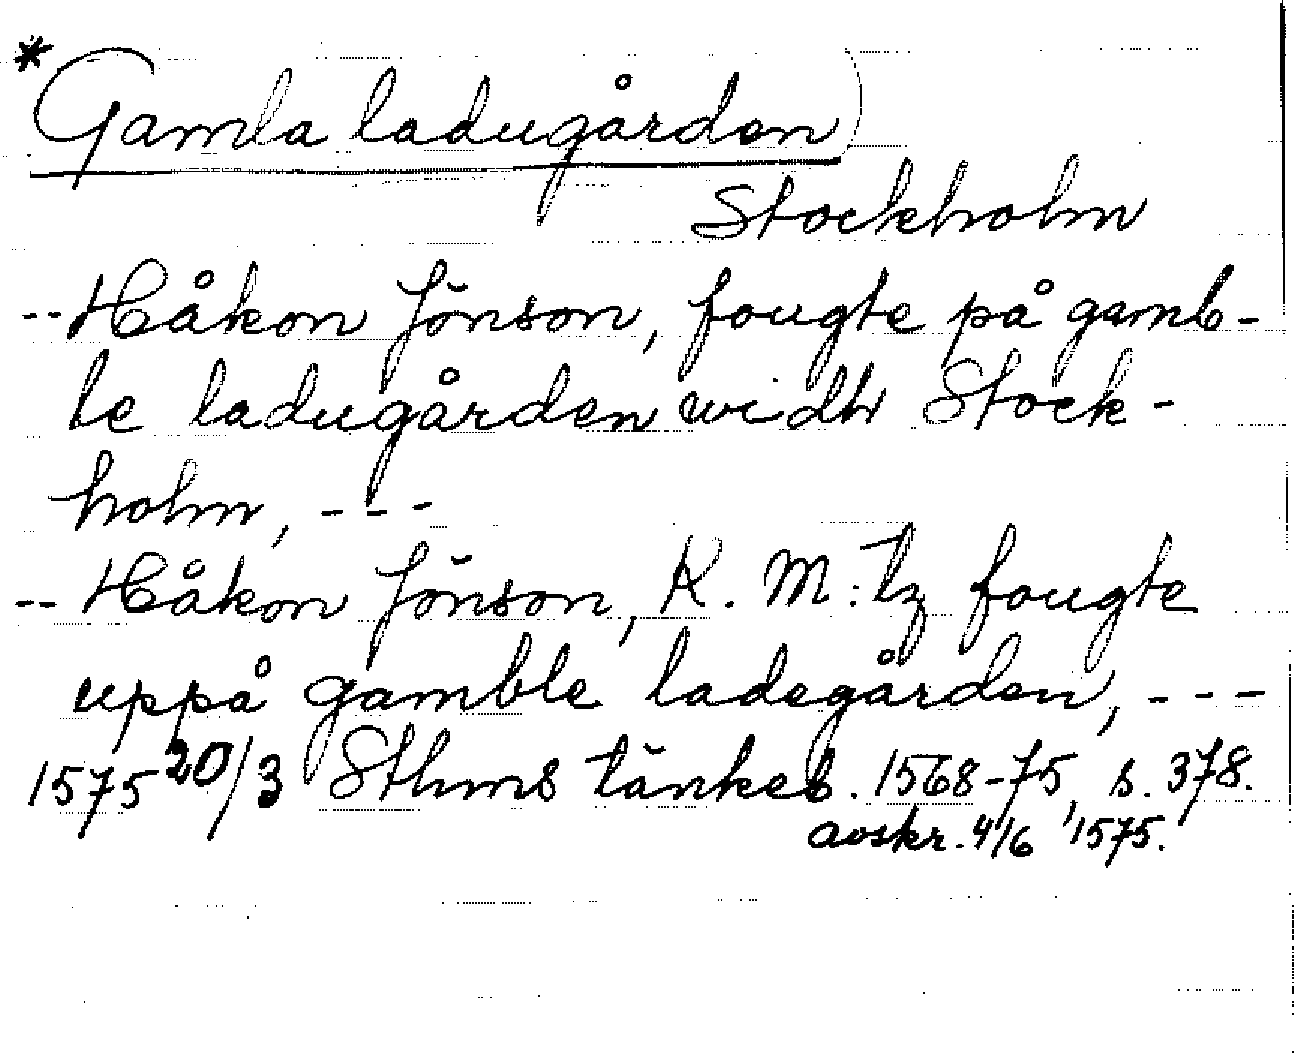 *Gamla ladugården)
Stockholm
-- Håkon Jönson, fougte på gamb-
le ladugården widh Stock-
holm, ---
-- Håkon Jönson, K. M:tz fougte
uppå gamble ladegården, ---
1575 20/3 Sthms tänkeb. 1568-75, s. 378.
avskr. 4/6 1575.